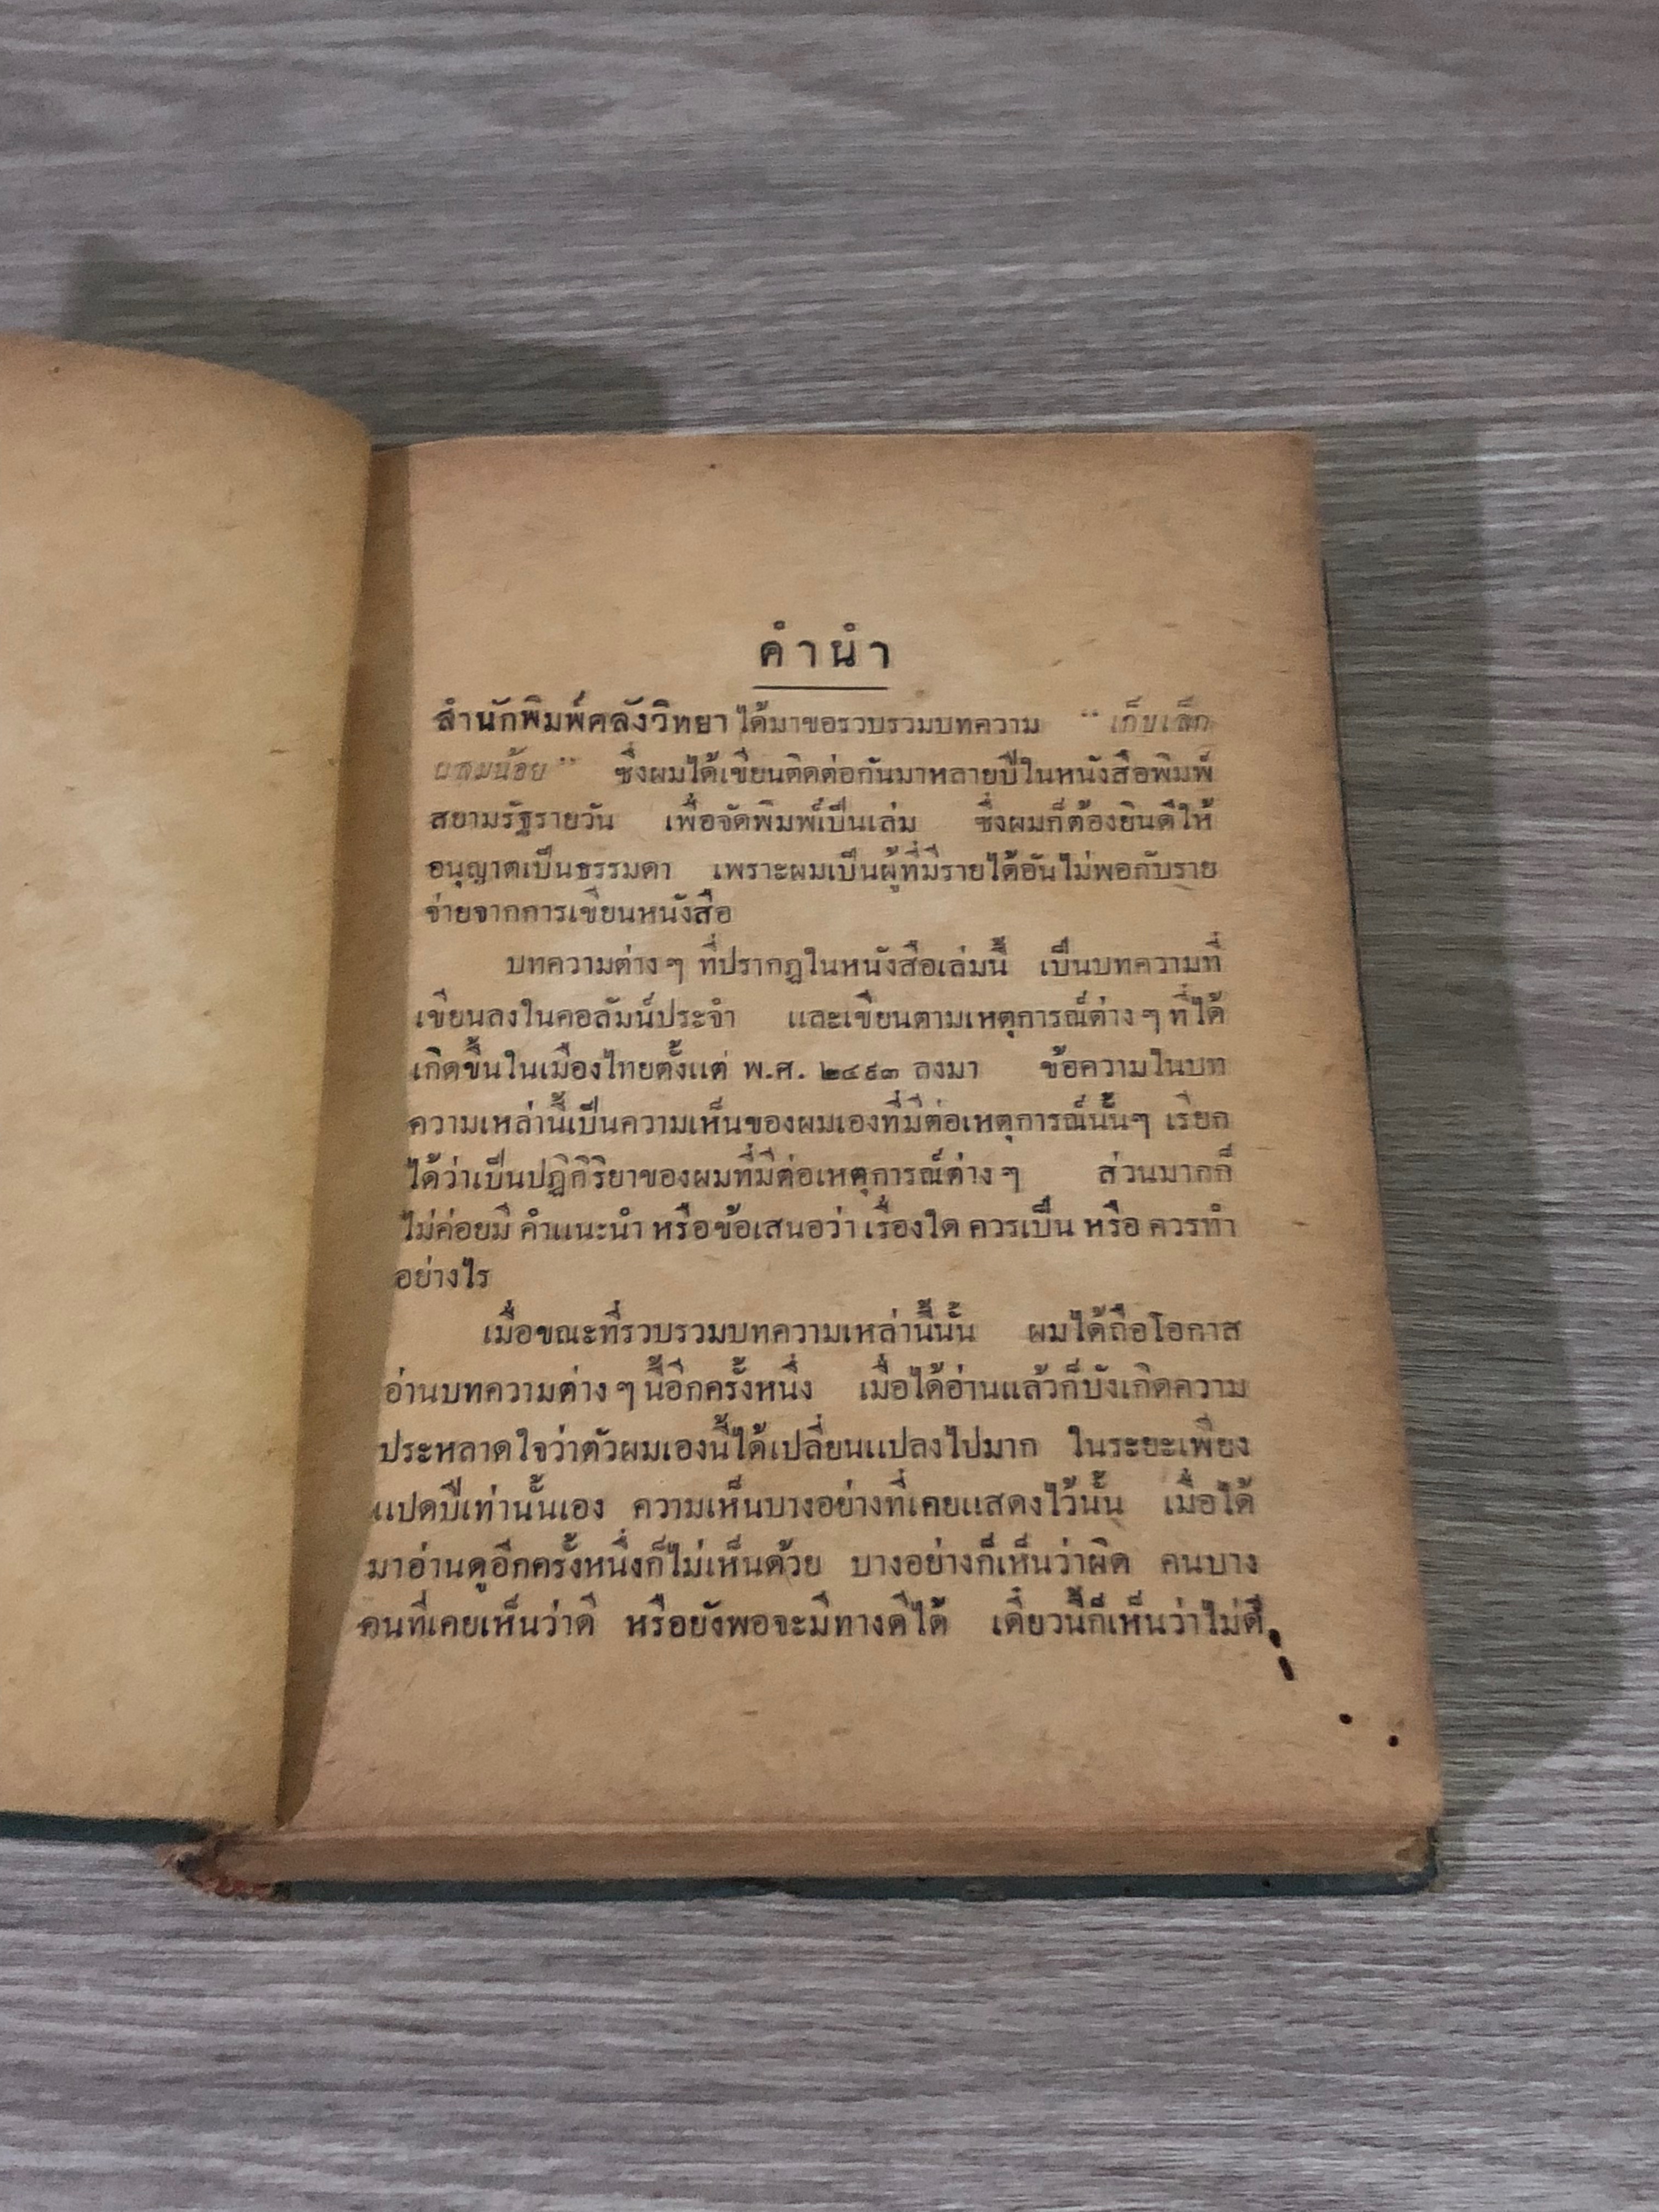 คำนำ
สำนักพิมพ์คลังวิทยา ได้มาขอรวบรวมบทความ "เก็บเล็ก
ผสมน้อย" ซึ่งผมได้เขียนติดต่อกันมาหลายปีในหนังสือพิมพ์
สยามรัฐรายวัน เพื่อจัดพิมพ์เป็นเล่ม ซึ่งผมก็ต้องยินดีให้
อนุญาตเป็นธรรมดา เพราะผมเป็นผู้ที่มีรายได้อันไม่พอกับราย
จ่ายจากการเขียนหนังสือ
บทความต่าง ๆ ที่ปรากฏในหนังสือเล่มนี้ เป็นบทความที่
เขียนลงในคอลัมน์ประจำ และเขียนตามเหตุการณ์ต่าง ๆ ที่ได้
เกิดขึ้นในเมืองไทยตั้งแต่ พ.ศ. ๒๔๙๓ ลงมา ข้อความในบท
ความเหล่านี้เป็นความเห็นของผมเองที่มีต่อเหตุการณ์นั้นๆ เรียก
ได้ว่าเป็นปฏิกิริยาของผมที่มีต่อเหตุการณ์ต่าง ๆ ส่วนมากก็
ไม่ค่อยมี คำแนะนำ หรือข้อเสนอว่า เรื่องใด ควรเป็น หรือ ควรทำ
อย่างไร
เมื่อขณะที่รวบรวมบทความเหล่านี้นั้น ผมได้ถือโอกาส
อ่านบทความต่าง ๆ นี้อีกครั้งหนึ่ง เมื่อได้อ่านแล้วก็บังเกิดความ
ประหลาดใจว่าตัวผมเองนี้ได้เปลี่ยนแปลงไปมาก ในระยะเพียง
แปดปีเท่านั้นเอง ความเห็นบางอย่างที่เคยแสดงไว้นั้น เมื่อได้
มาอ่านดูอีกครั้งหนึ่งก็ไม่เห็นด้วย บางอย่างก็เห็นว่าผิด คนบาง
คนที่เคยเห็นว่าดี หรือยังพอจะมีทางดีได้ เดี๋ยวนี้ก็เห็นว่าไม่ดี